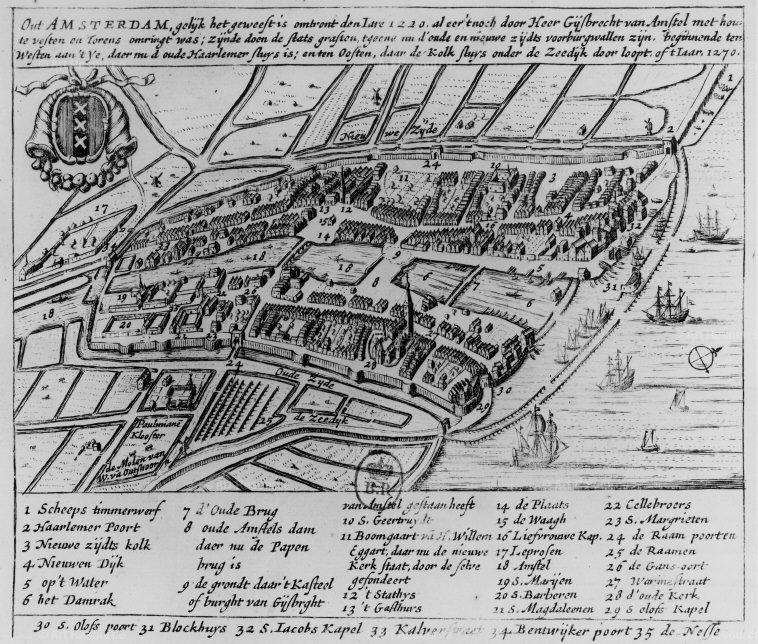 Out AMSTERDAM, gelijk het geweest is omtrent den Iare 1220. al eer 't noch door Heer Gijsbrecht van Amstel met hou-
te vesten en Torens omringt was; Zijnde doen de stats graften, tgeene nu d'oude en nieuwe zijdts voorburgwallen zijn, beginnende ten
Westen aan 't Ye, daer nu d oude Haarlemer sluys is; en ten Oosten, daar de Kolk sluys onder de Zeedijk door loopt. oft Iaar 1270.
Nieuwe Zijde
Oude Zijde
de Zeedijk
Pauliniane
Klooster
de Molen van
B.R
1 Scheeps timmerwerf
2 Haarlemer Poort
3 Nieuwe zijdts kolk
4 Nieuwen Dijk
5 op't Water
6 het Damrak
7 d'Oude Brug
8 oude Amstels dam
daer nu de Papen
brug is
9 de grondt daar't Kasteel
of burght van Gijsbrght
van Amstel gestaan heeft
10 S. Geertruydt
11 Boomgaart va H. Willem
Eggart, daar nu de nieuwe
Kerk staat, door de selve
gefondeert
12 't Stathys
13 't Gasthurs
14 de Plaats
15 de Waagh
16 Liefvrouwe Kap.
17 Leprosen
18 Amstel
19 S. Marijen
20 S. Barberen
21 S. Magdaleenen
22 Cellebroers
23 S. Margrieten
24 de Raam poorten
25 de Raamen
26 de Gans-oort
27 Warmestraat
28 d'oude Kerk
29 S olofs Kapel
30 S. Olofs poort 31 Blockhuys 32 S. Iacobs Kapel 33 Kalverstraet 34 Bentwijker poort 35 de Nesse